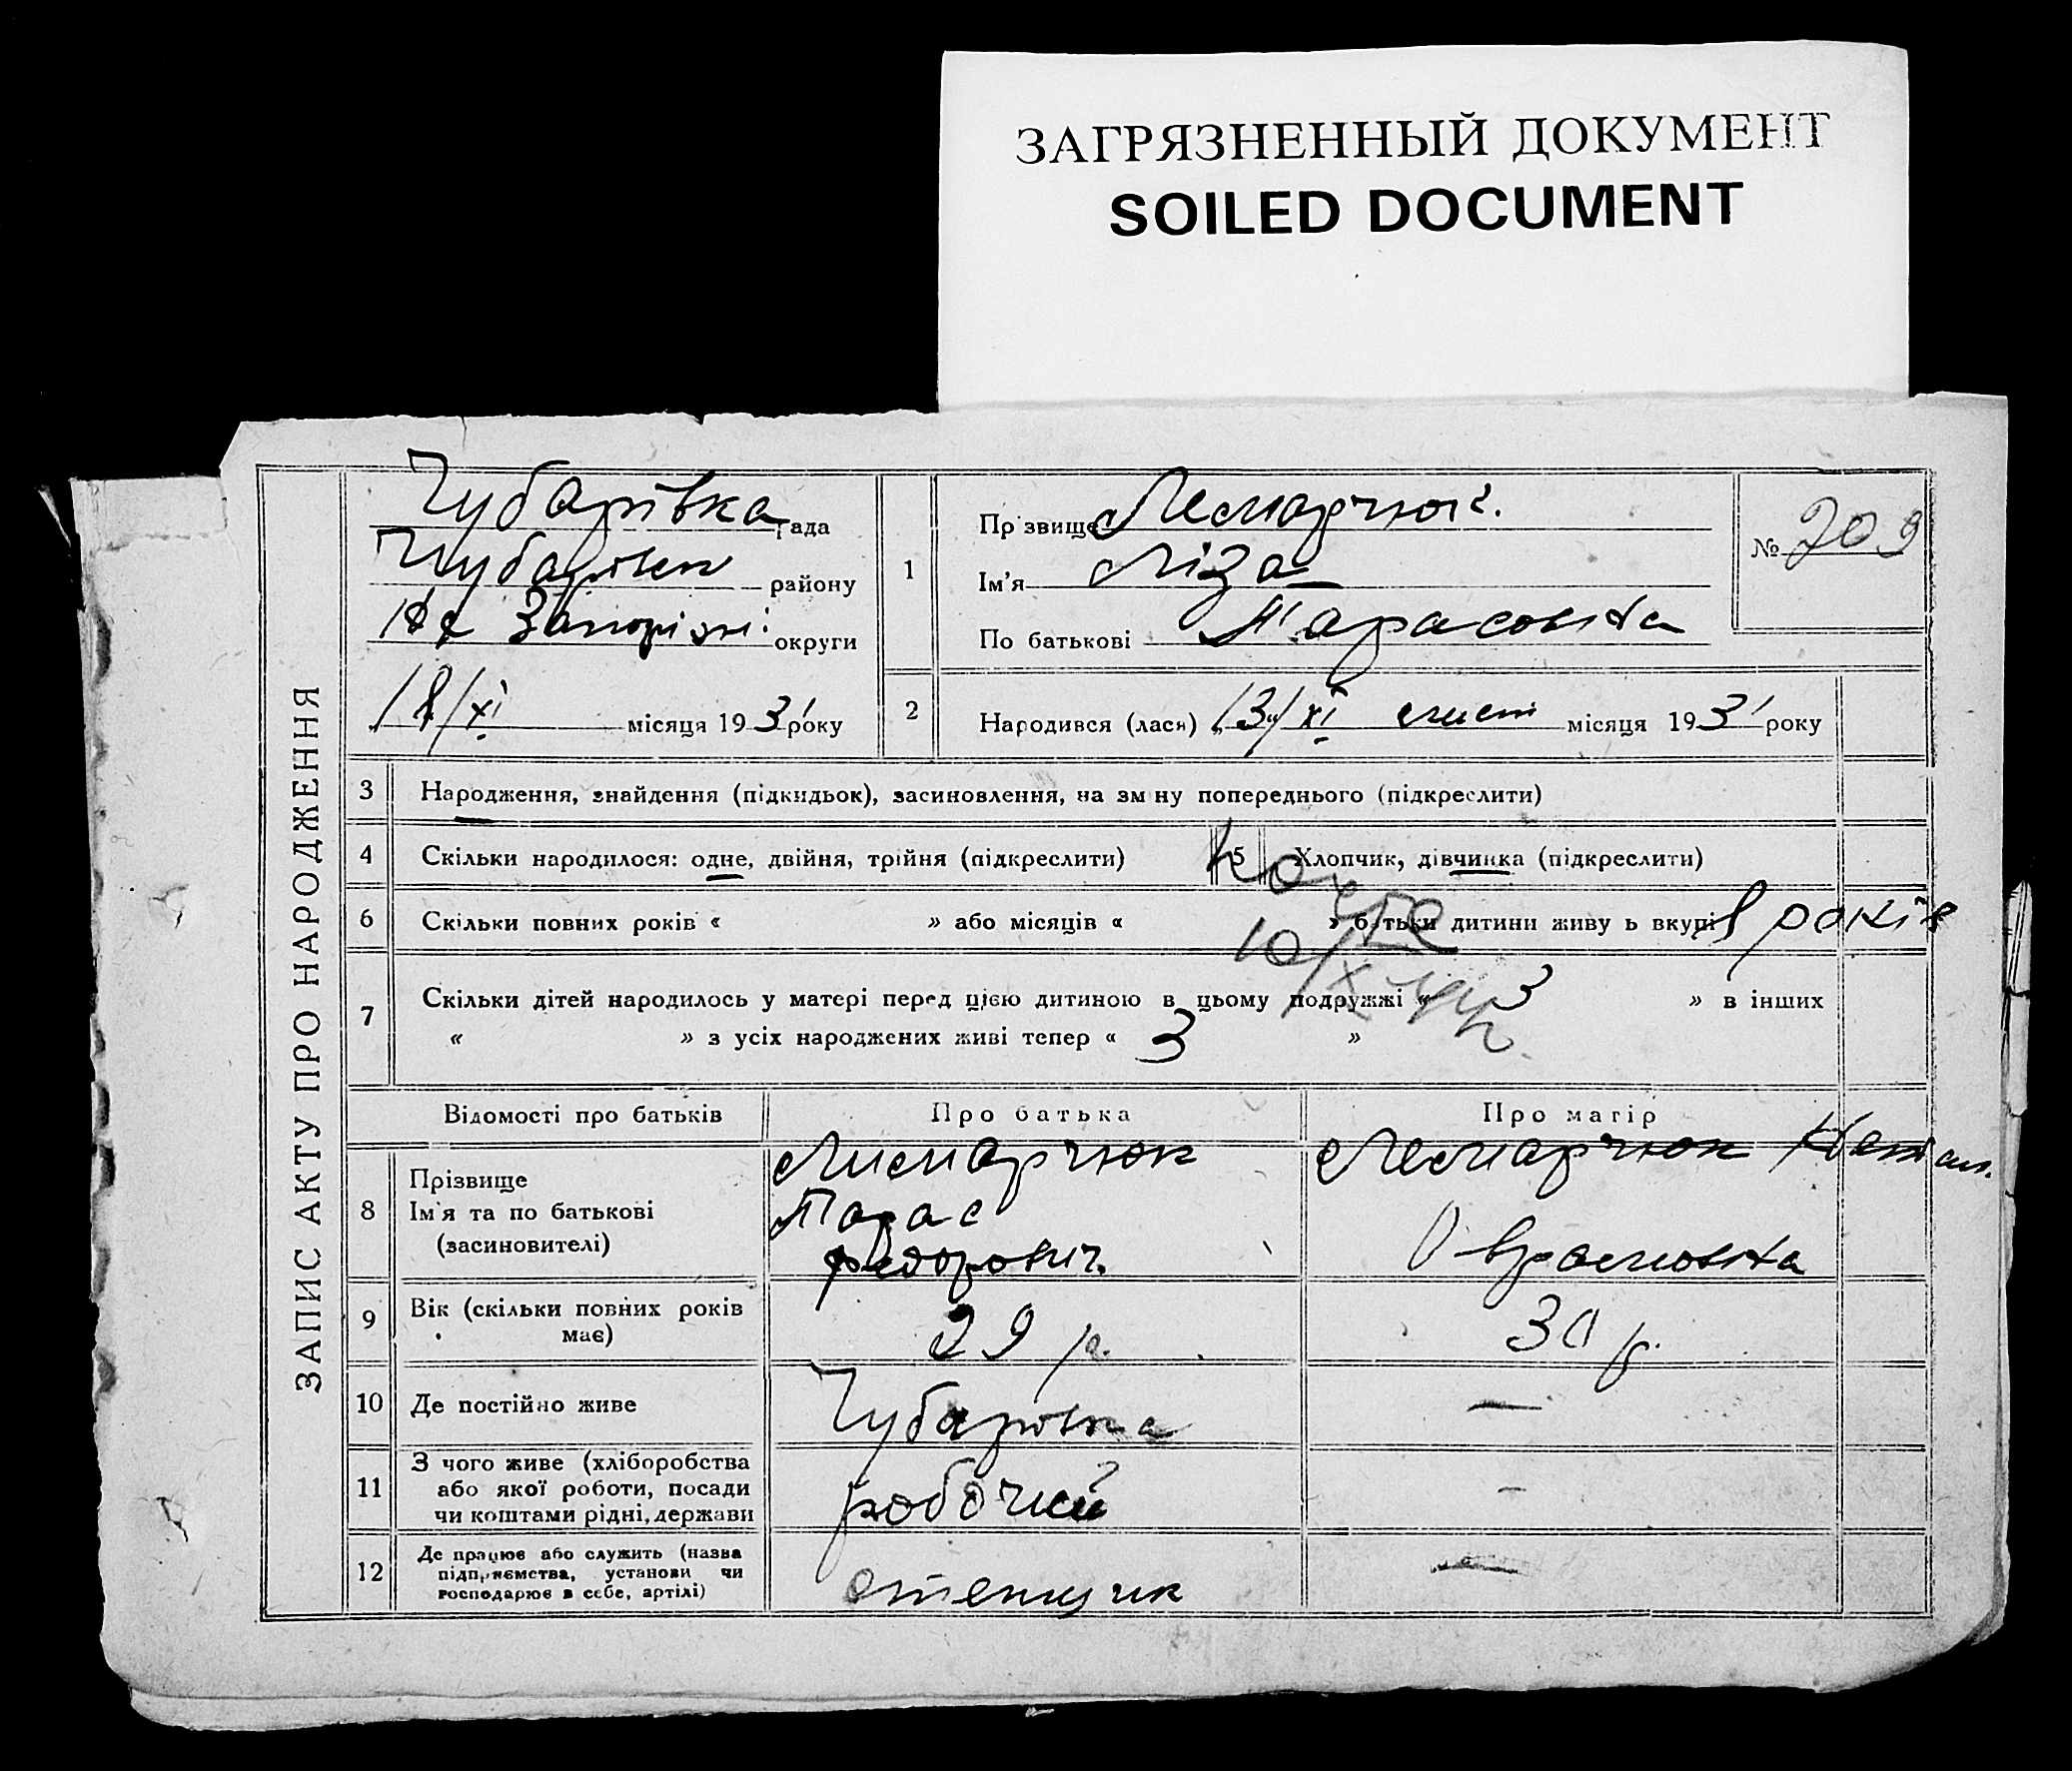 ЗАГРЯЗНЕННЫЙ ДОКУМЕНТ
SOILED DOCUMENT
ЗАПИС АКТУ ПРО НАРОДЖЕННЯ
Чубарівка рада
району
округи
18/XI місяця 1931 року
1
Прізвище
Ім'я Ліза
По батькові Тарасовна
№ 209
2 Народився (лася) „13“/XI місяця 1931 року
3 Народження, знайдення (підкидьок), засиновлення, на зміну попереднього (підкреслити)
4 Скільки народилося: одне, двійня, трійня (підкреслити)
5 Хлопчик, дівчинка (підкреслити)
6 Скільки повних років « » або місяців « » батьки дитини живуть вкупі 8 років
7 Скільки дітей народилось у матері перед цією дитиною в цьому подружжі « 3 » в інших
« » з усіх народжених живі тепер « 3 »
Відомості про батьків Про батька Про матір
8 Прізвище
Ім'я та по батькові
(засиновителі)
Тарас
Федорович
9 Вік (скільки повних років
має)
29 р. 30 р.
10 Де постійно живе Чубаровка —
11 З чого живе (хліборобства
або якої роботи, посади
чи коштами рідні, держави
робочий -
12 Де працює або служить (назва
підприємства, установи чи
господарює в себе, артілі)
—